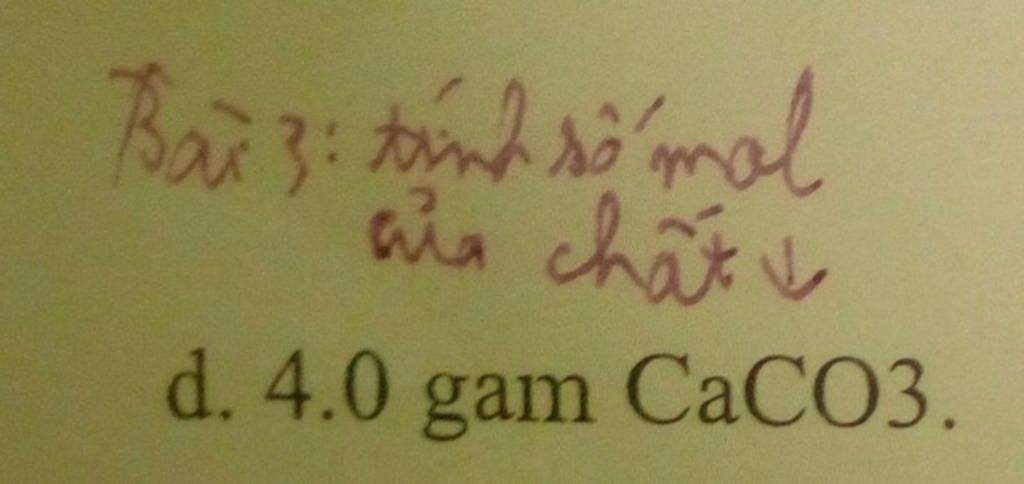 Bài 3: tính số mol
của chất ↓
d. 4.0 gam CaCO3.